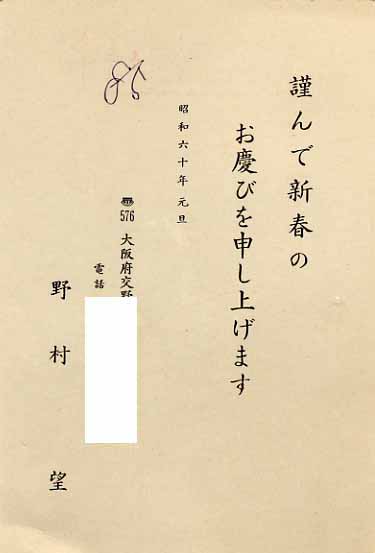 謹んで新春の
お慶びを申し上げます
昭和六十年 元旦
576 大阪府交野
電話
野村 望